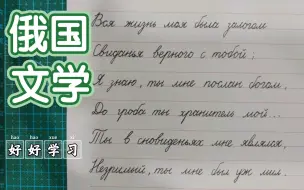 俄国
文学
hǎo hǎo xué xí
好好学习
Вся жизнь моя была залогом
Свиданья верного с тобой;
Я знаю, ты мне послан богом,
До гроба ты хранитель мой...
Ты в сновиденьях мне являлся,
Незримый, ты мне был уж мил.